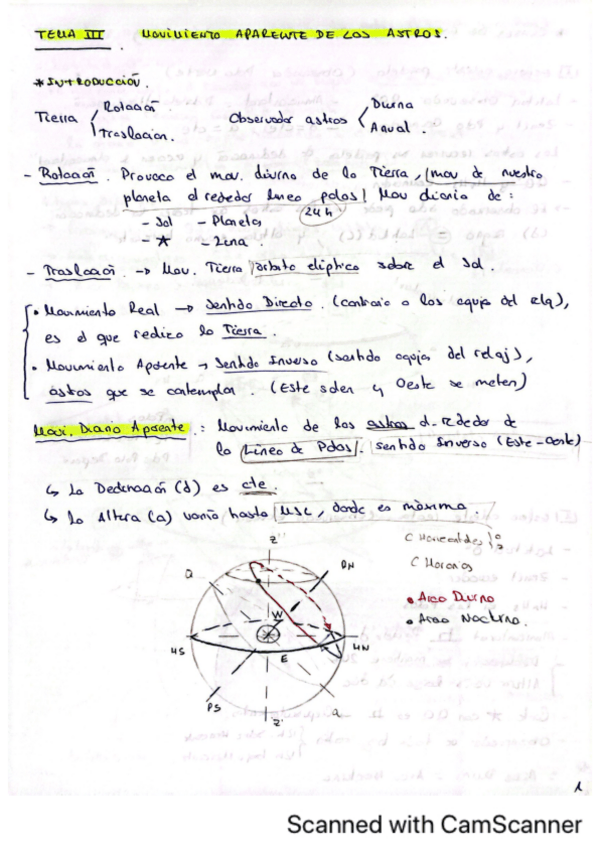 TEMA III MOVIMIENTO APARENTE DE LOS ASTROS.
* INTRODUCCIÓN.
Tierra Rotación Observador astros Diurna
Traslación. Anual.
- Rotación. Provoca el mov. diurno de la Tierra, (mov de nuestro
planeta alrededor línea polos) Mov diario de:
- Sol - Planetas 24 h
- ★ - Luna.
- Traslación. → Mov. Tierra órbita elíptica sobre el Sol.
• Movimiento Real → Sentido Directo. (contrario a las agujas del reloj),
es el que realiza la Tierra.
• Movimiento Aparente → Sentido Inverso (sentido agujas del reloj),
astros que se contemplan. (Este salen y Oeste se meten)
Mov. Diario Aparente.: Movimiento de los astros alrededor de
la Línea de Polos. sentido Inverso (Este-Oeste)
↳ La Declinación (d) es cte.
↳ La Altura (a) varía hasta MSC, donde es máxima.
Z''
C Horizontales
Q PN C Horarios
• Arco Diurno
W • Arco Nocturno.
HS HN
E
PS Z' Q
1
Scanned with CamScanner